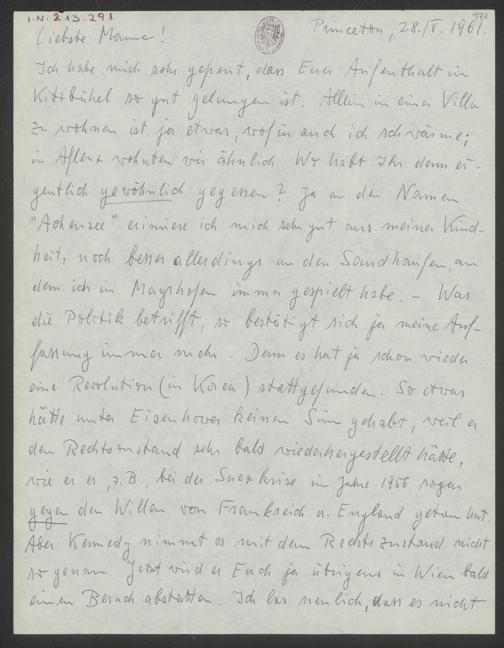 I.N. 213.291
172
Princeton, 28./IV. 1961.
Liebste Mama!
Ich habe mich sehr gefreut, dass Euer Aufenthalt in
Kitzbühel so gut gelungen ist. Allein in einer Villa
zu wohnen ist ja etwas, wofür auch ich schwärme;
in Aflenz wohnten wir ähnlich. Wo habt Ihr denn ei-
gentlich gewöhnlich gegessen? Ja an den Namen
"Achensee" erinnere ich mich sehr gut aus meiner Kind-
heit, noch besser allerdings an den Sandhaufen, an
dem ich in Mayrhofen immer gespielt habe. – Was
die Politik betrifft, so bestätigt sich ja meine Auf-
fassung immer mehr. Denn es hat ja schon wieder
eine Revolution (in Korea) stattgefunden. So etwas
hätte unter Eisenhower keinen Sinn gehabt, weil er
den Rechtszustand sehr bald wiederhergestellt hätte,
wie er es, z.B., bei der Suezkrise im Jahre 1956 sogar
gegen den Willen von Frankreich u. England getan hat.
Aber Kennedy nimmt es mit dem Rechtszustand nicht
so genau. Jetzt wird er Euch ja übrigens in Wien bald
einen Besuch abstatten. Ich las neulich, dass es nicht